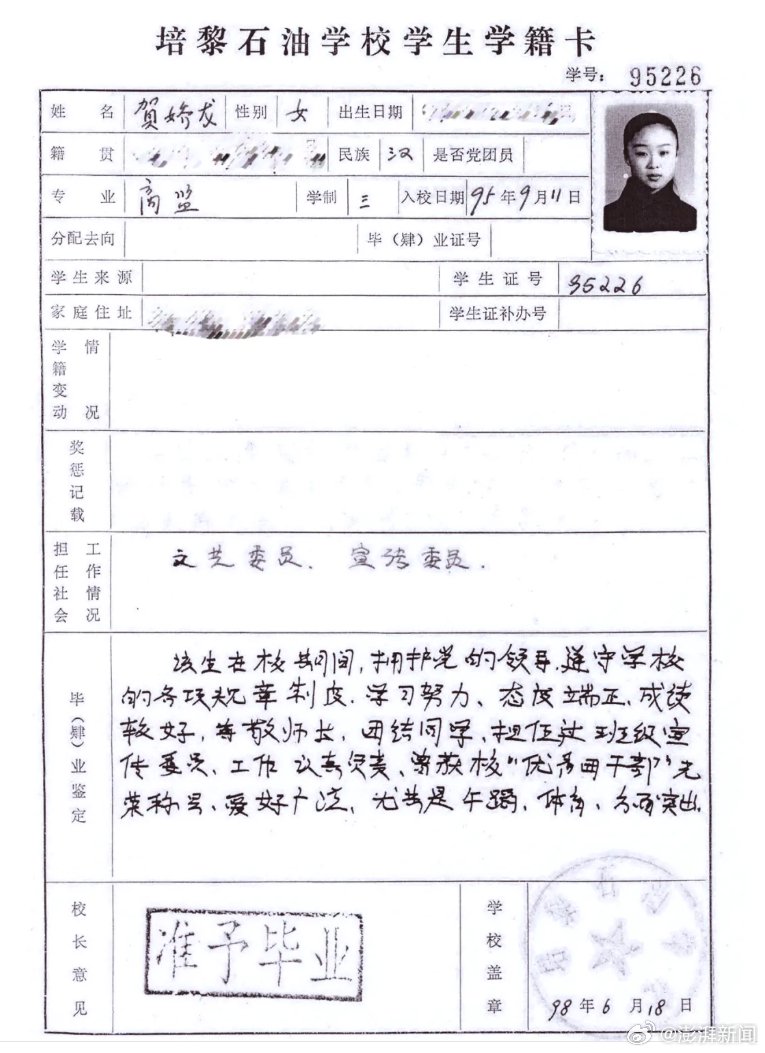 培黎石油学校学生学籍卡
学号: 95226
姓名 贺娇龙 性别 女 出生日期
籍贯 民族 汉 是否党团员
专业 商监 学制 三 入校日期 95年9月11日
分配去向 毕(肄)业证号
学生来源 学生证号 95226
家庭住址 学生证补办号
学籍变动情况
奖惩记载
担任社会工作情况 文艺委员、宣传委员.
毕(肄)业鉴定
该生在校期间,拥护党的领导.遵守学校
的各项规章制度.学习努力、态度端正.成绩
较好,尊敬师长,团结同学.担任过班级宣
传委员、工作认真负责、曾获校"优秀团干部"光
荣称号、爱好广泛,尤其是午蹈、体育、方面突出.
校长意见 准予毕业 学校盖章 98年6月18日
@澎湃新闻